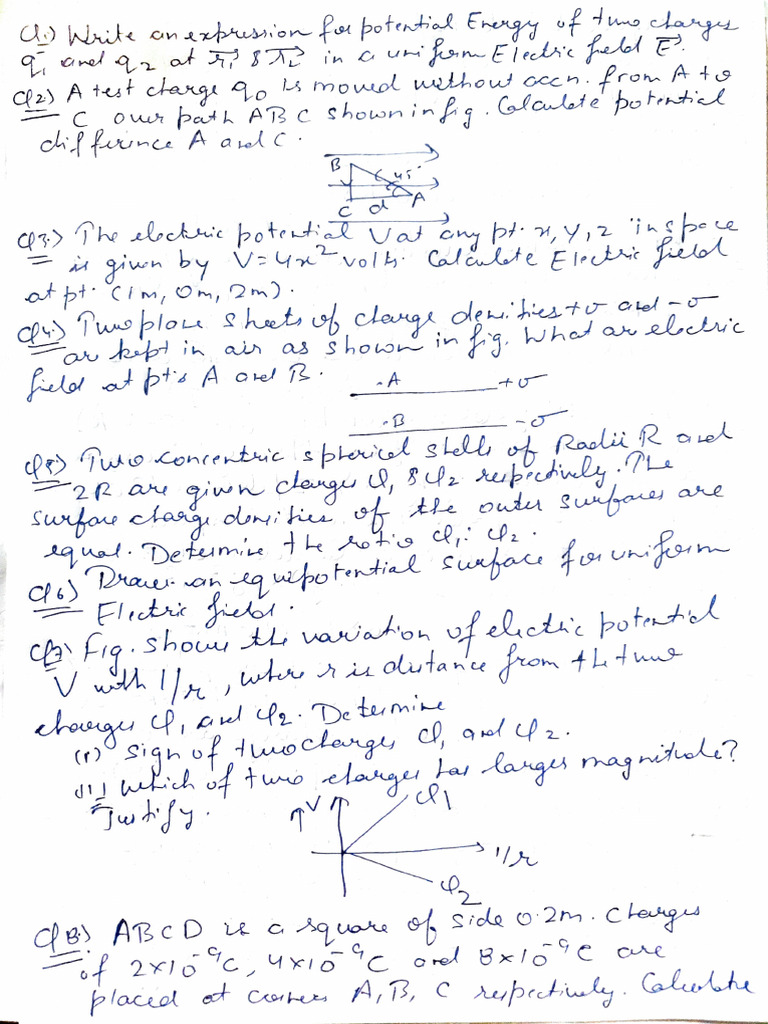 Q1.) Write an expression for potential Energy of two charges
q1 and q2 at r1 & r2 in a uniform Electric field E.
Q2) A test charge q0 is moved without accn. from A to
C over path ABC shown in fig. Calculate potential
difference A and C.
B
45°
C d A
Q3.) The electric potential V at any pt. x, y, z in space
is given by V=4x² volts. Calculate Electric field
at pt. (1m, 0m, 2m).
Q4.) Two plane sheets of charge densities +σ and -σ
are kept in air as shown in fig. What are electric
field at pt's A and B.
.A +σ
.B -σ
Q5.) Two concentric spherical shells of Radii R and
2R are given charges Q1 & Q2 respectively. The
surface charge densities of the outer surfaces are
equal. Determine the ratio Q1: Q2.
Q6) Draw an equipotential surface for uniform
Electric field.
Q7) Fig. shows the variation of electric potential
V with 1/r, where r is distance from the two
charges Q1 and Q2. Determine
(i) sign of two charges Q1 and Q2.
(ii) which of two charges has larger magnitude?
Justify.
↑V Q1
1/r
Q2
Q8.) ABCD is a square of side 0.2m. Charges
of 2×10⁻⁹C, 4×10⁻⁹C and 8×10⁻⁹C are
placed at corners A, B, C respectively. Calculate